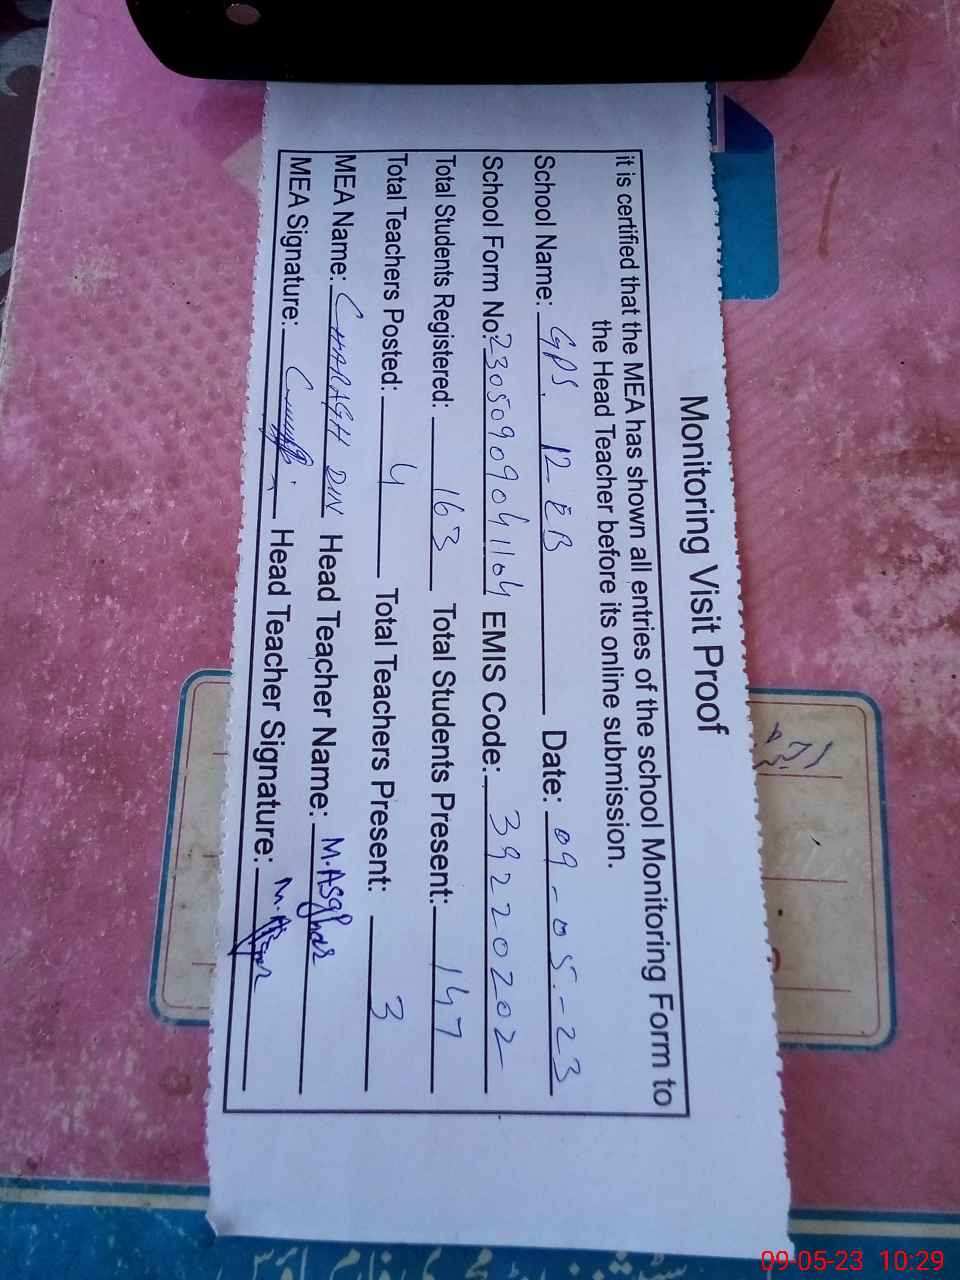 Monitoring Visit Proof
it is certified that the MEA has shown all entries of the school Monitoring Form to
the Head Teacher before its online submission.
School Name: GPS. 12-EB Date: 09-05-23
School Form No: 23050909041104 EMIS Code: 39220202
Total Students Registered: 163 Total Students Present: 147
Total Teachers Posted: 4 Total Teachers Present: 3
MEA Name: CHARAGH DIN Head Teacher Name: M.ASghar
MEA Signature: Head Teacher Signature: M.ASghar
09-05-23 10:29